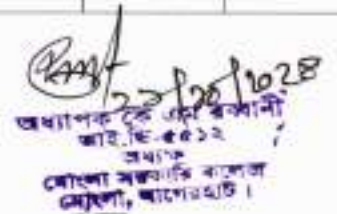 ২২/১০/২০২৪
অধ্যাপক কে এম রব্বানী
আই.ডি-৫৫১২
অধ্যক্ষ
মোংলা সরকারি কলেজ
মোংলা, বাগেরহাট।